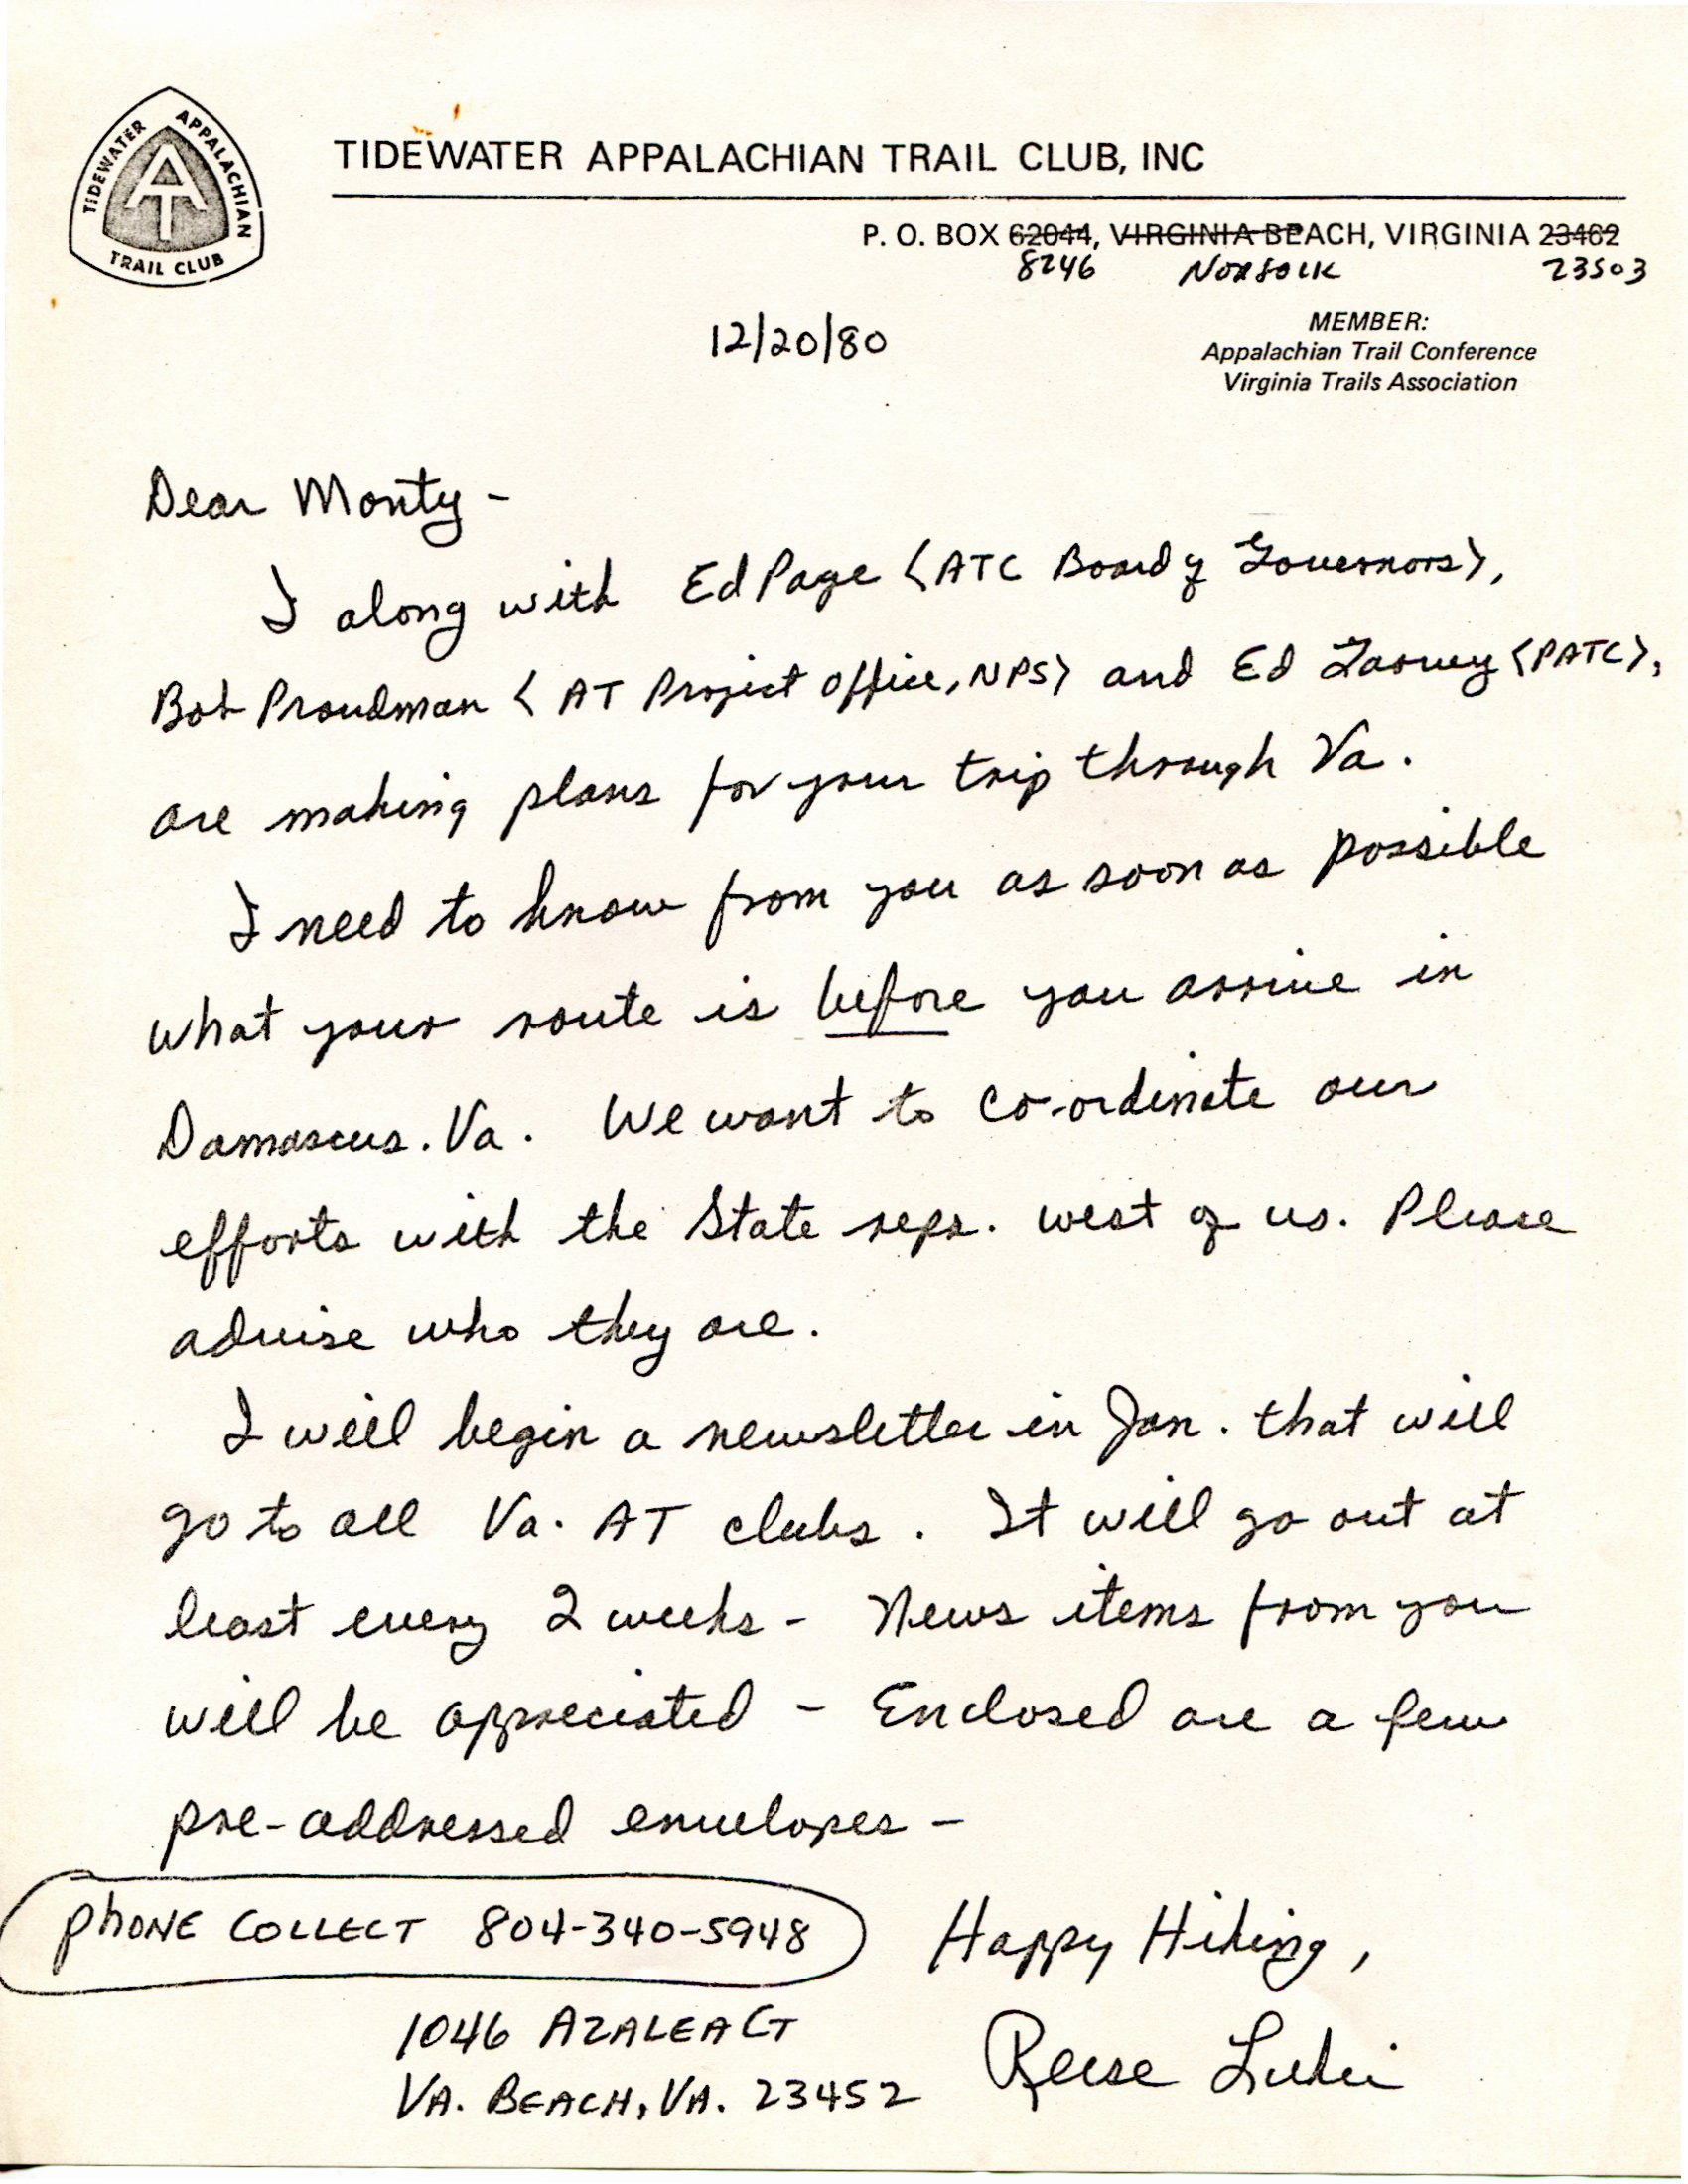 TIDEWATER APPALACHIAN
AT
TRAIL CLUB
TIDEWATER APPALACHIAN TRAIL CLUB, INC
P. O. BOX 62044, VIRGINIA BEACH, VIRGINIA 23462
8246 Norfolk 23503
MEMBER:
Appalachian Trail Conference
Virginia Trails Association
12/20/80
Dear Monty -
I along with Ed Page (ATC Board of Governors),
Bob Proudman (AT Project Office, NPS) and Ed (PATC),
are making plans for your trip through Va.
I need to know from you as soon as possible
what your route is before you arrive in
Damascus. Va. We want to co-ordinate our
efforts with the State reps. west of us. Please
advise who they are.
I will begin a newsletter in Jan. that will
go to all Va. AT clubs. It will go out at
least every 2 weeks - News items from you
will be appreciated - Enclosed are a few
pre-addressed envelopes -
PHONE COLLECT 804-340-5948
Happy Hiking,
1046 AZALEA CT
VA. BEACH, VA. 23452
Reese Lukei